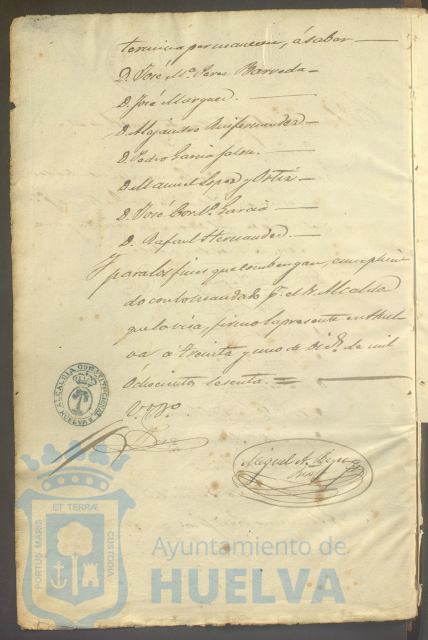 permanecen, á saber.—
D. José Mª. Peres Barreda—
D. José Marquez.—
D. Alejandro
D. Pedro Garcia
D. Manuel Lopez y Ortiz.—
D. José Gonz. Garcia—
D. Rafael Hernandez.—
Y para los fines que combengan, cumplien-
do con lo mandado p. el Sr. Alcalde
que la visa, firmo la presente en Huel-
va á treinta y uno de Dic. de mil
ochocientos sesenta.
V.º B.º
Miguel A.
ALCALDIA CONSTITUCIONAL
HUELVA
PORTUS MARIS
ET TERRÆ
CUSTODIA
Ayuntamiento de
HUELVA